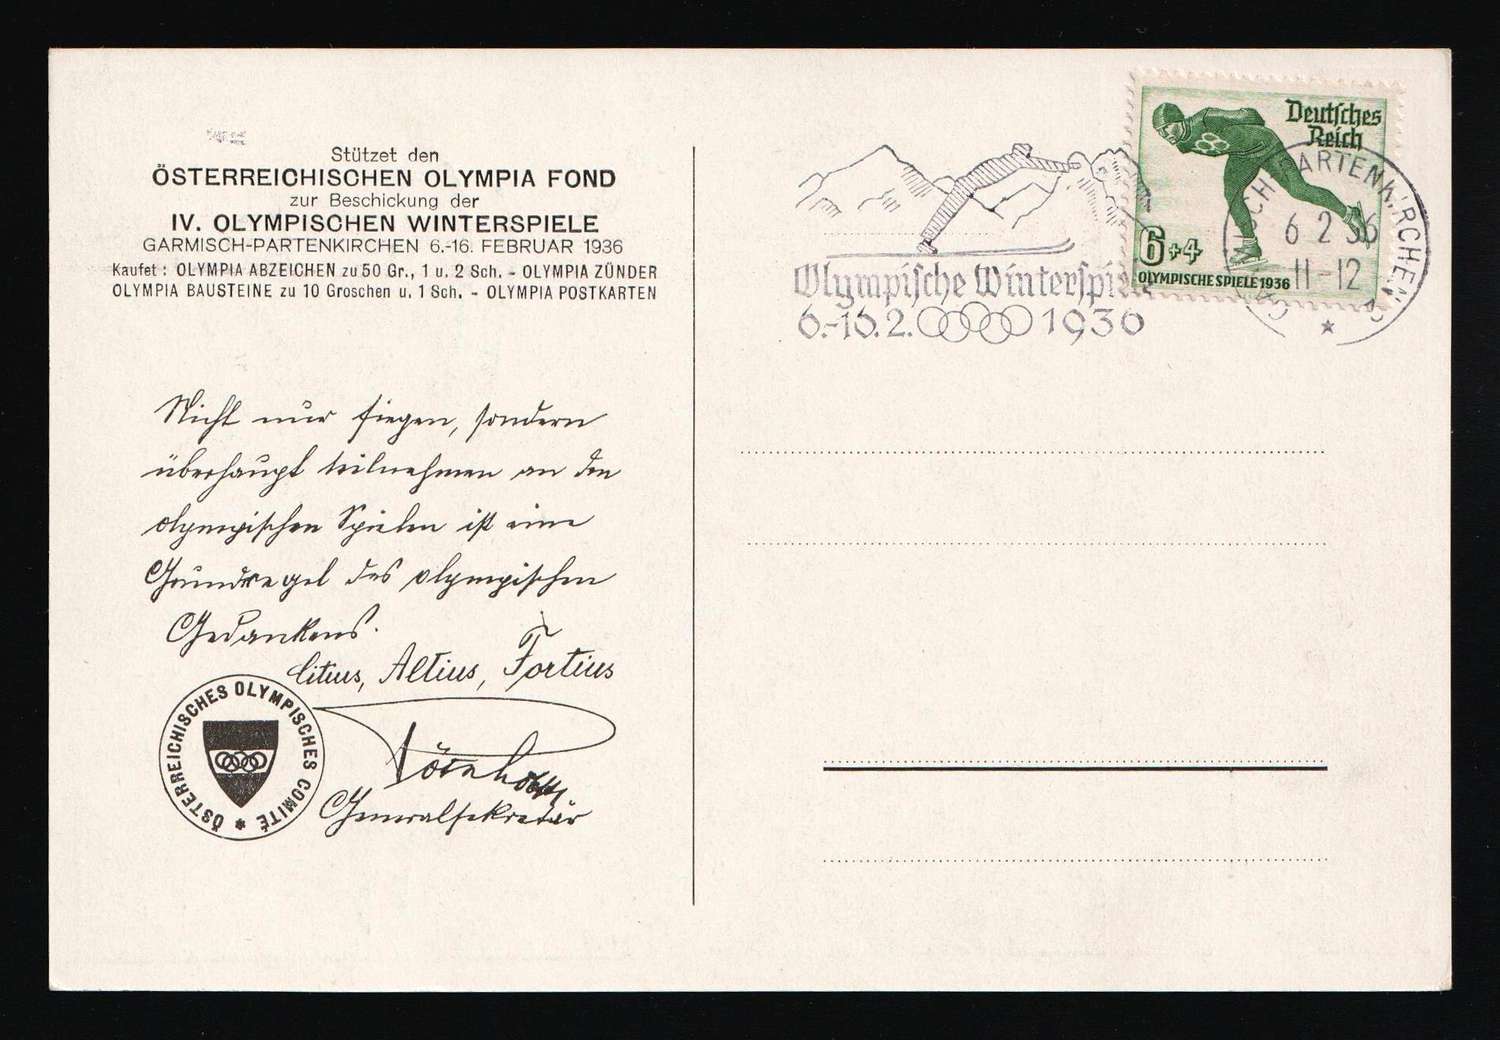 Stützet den
ÖSTERREICHISCHEN OLYMPIA FOND
zur Beschickung der
IV. OLYMPISCHEN WINTERSPIELE
GARMISCH-PARTENKIRCHEN 6.-16. FEBRUAR 1936
Kaufet : OLYMPIA ABZEICHEN zu 50 Gr., 1 u. 2 Sch. - OLYMPIA ZÜNDER
OLYMPIA BAUSTEINE zu 10 Groschen u. 1 Sch. - OLYMPIA POSTKARTEN
Nicht nur siegen, sondern
überhaupt teilnehmen an den
olympischen Spielen ist eine
Grundregel des olympischen
Gedankens.
Citius, Altius, Fortius
Generalsekretär
ÖSTERREICHISCHES OLYMPISCHES COMITÉ *
Deutsches
Reich
6+4
OLYMPISCHE SPIELE 1936
GARMISCH-PARTENKIRCHEN
6 2 36
11-12
Olympische Winterspiele
6.-16.2. 1936